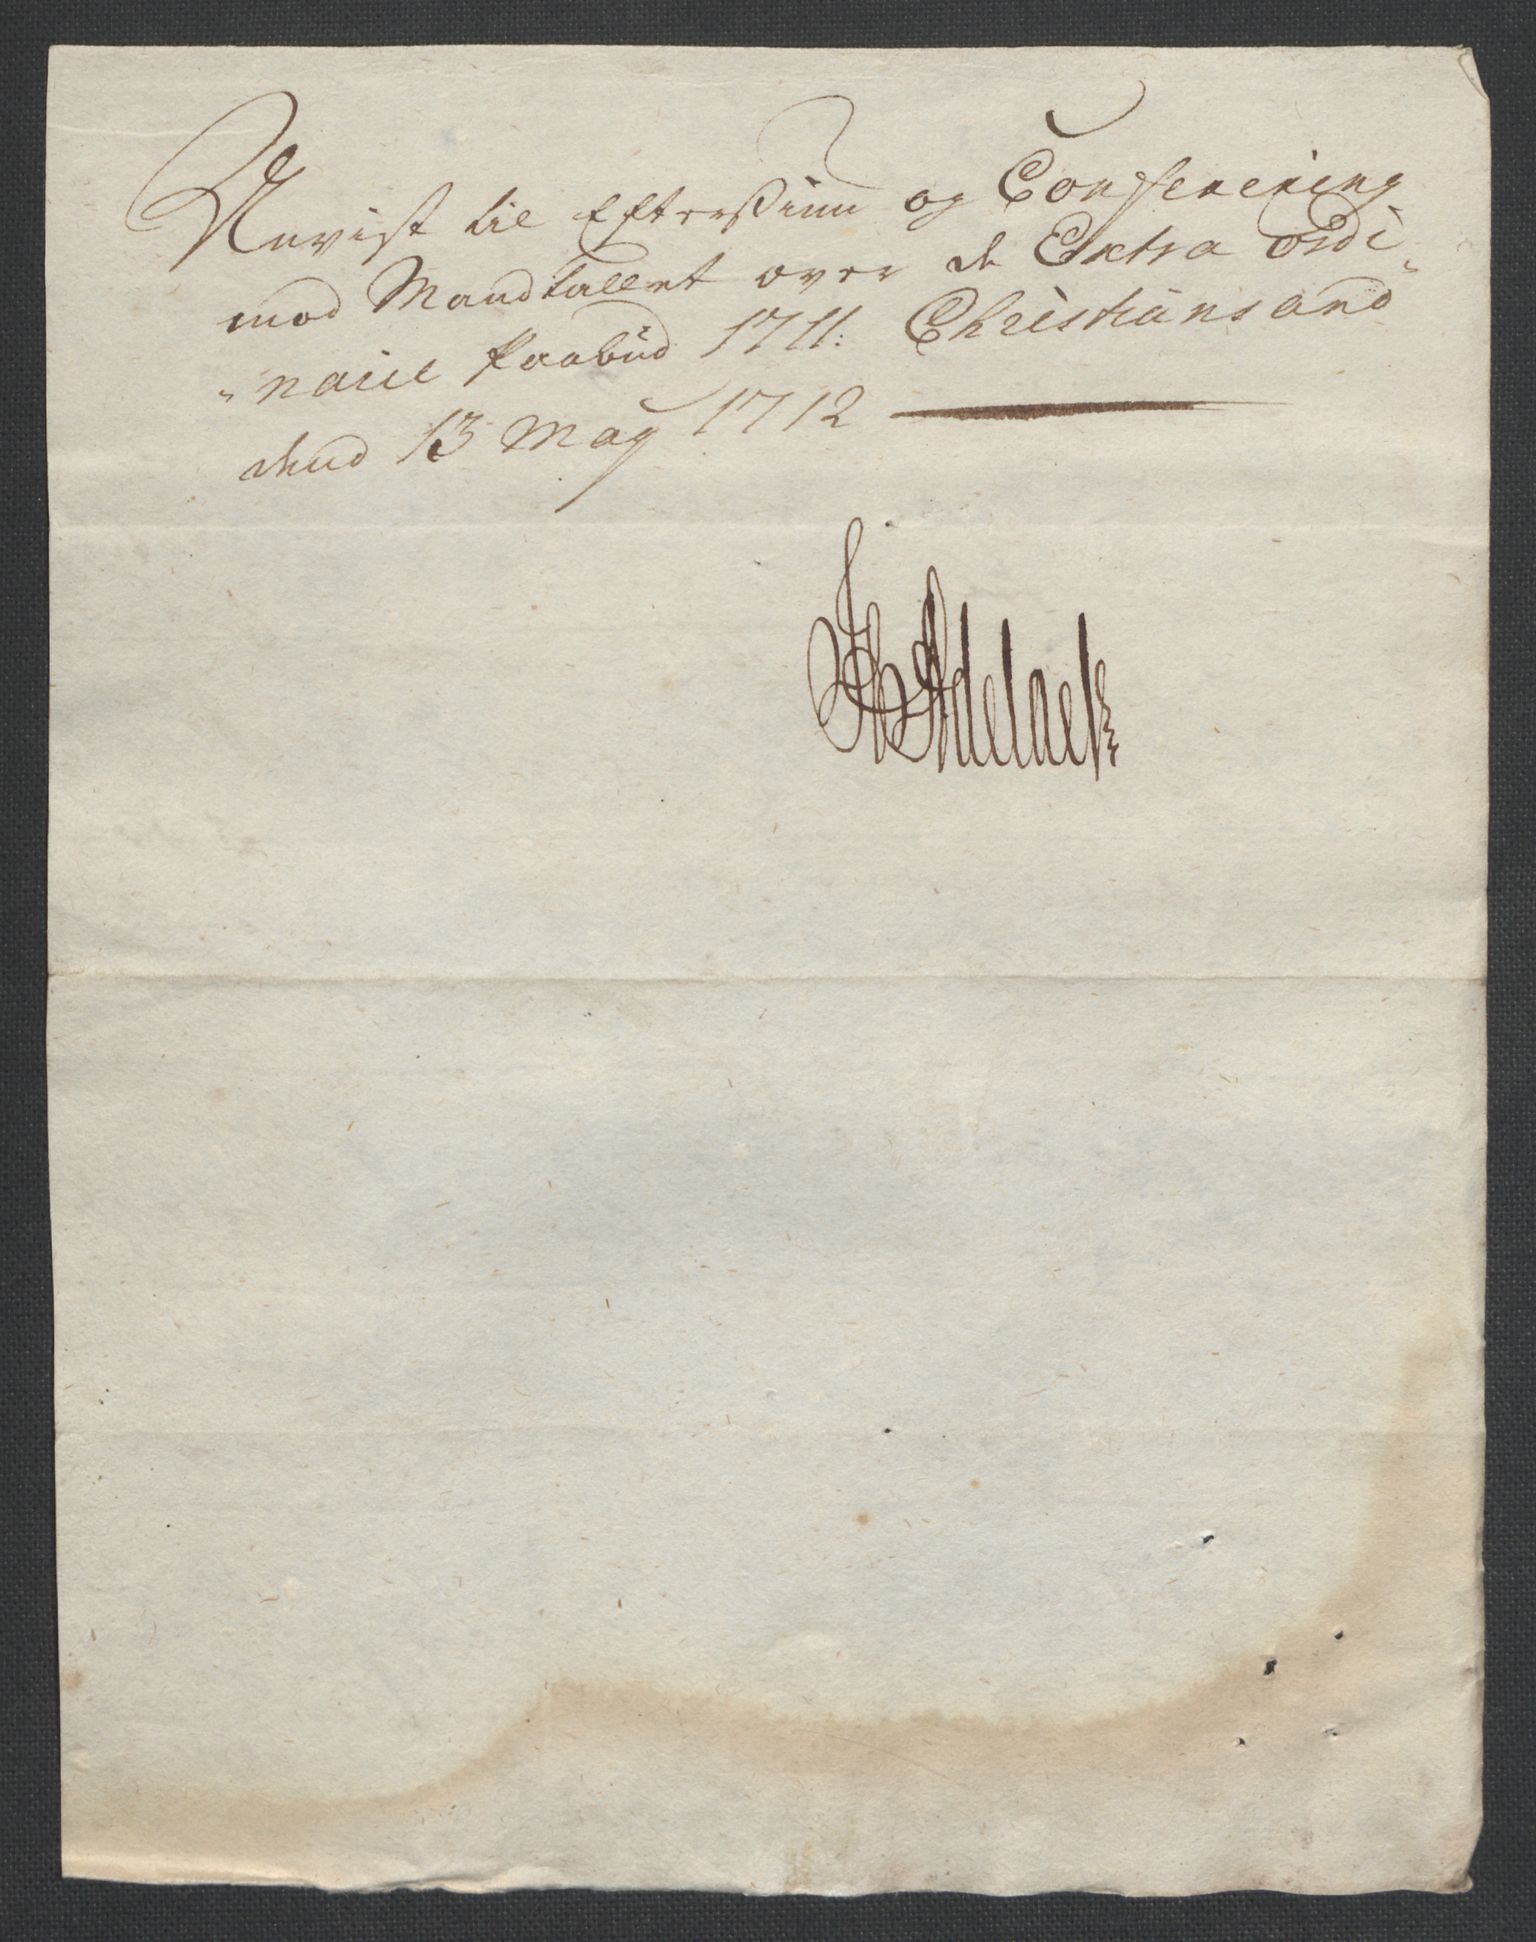 Anvist til Efftersiun og Conferering
mod Mandtallet over de Extra ordi„
„naire Paabud 1711: Christiansand
dend 13 May 1712
H Adelaer